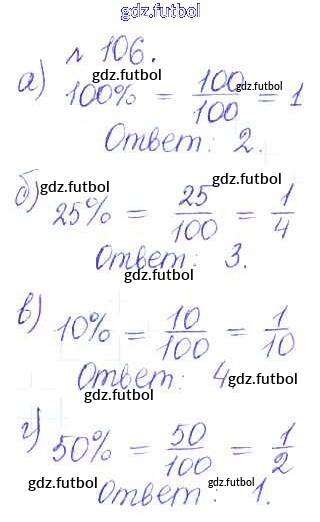 gdz.futbol
№ 106.
gdz.futbol
а) 100% = 100/100 = 1
gdz.futbol
Ответ: 2.
gdz.futbol
gdz.futbol
б) 25% = 25/100 = 1/4
Ответ: 3.
gdz.futbol
gdz.futbol
в) 10% = 10/100 = 1/10
gdz.futbol
Ответ: 4.
gdz.futbol
gdz.futbol
г) 50% = 50/100 = 1/2
gdz.futbol
gdz.futbol
Ответ: 1.
gdz.futbol